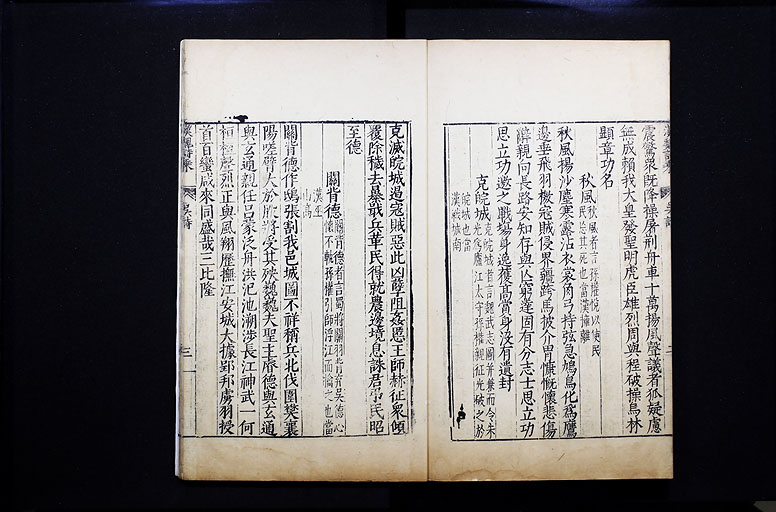 震驚衆既降操屠荊舟車十萬揚風聲議者狐疑慮
無成賴我大皇發聖明虎臣雄烈周與程破操烏林
顯章功名
秋風
秋風者言孫權悅以使民
民忘其死也當漢擁離
秋風揚沙塵寒露沾衣裳角弓持弦急鳩鳥化爲鷹
邊垂飛羽檄寇賊侵界疆跨馬披介冑慷慨懷悲傷
辭親向長路安知存與亡窮達固有分志士思立功
思立功邀之戰場身逸獲高賞身沒有遺封
克皖城
克皖城者言魏武志圖并兼而令朱
光爲廬江太守孫權親征光破之於
皖城也當
漢戰城南
克滅皖城遏寇賊惡此凶孽阻姦慝王師赫征衆傾
覆除穢去暴戢兵革民得就農邊境息誅君弔民昭
至德
關背德
關背德者言蜀將關羽背弃吳德心
懷不軌孫權引師浮江而擒之也當
漢巫
山高
關背德作鴟張割我邑城圖不祥稱兵北伐圍樊襄
陽嗟臂大於股將受其殃巍巍夫聖主睿德與玄通
與玄通親任呂蒙泛舟洪汜池溯涉長江神武一何
桓桓聲烈正與風翔歷撫江安城大據郢邦虜羽授
首百蠻咸來同盛哉三比隆
吳詩
三